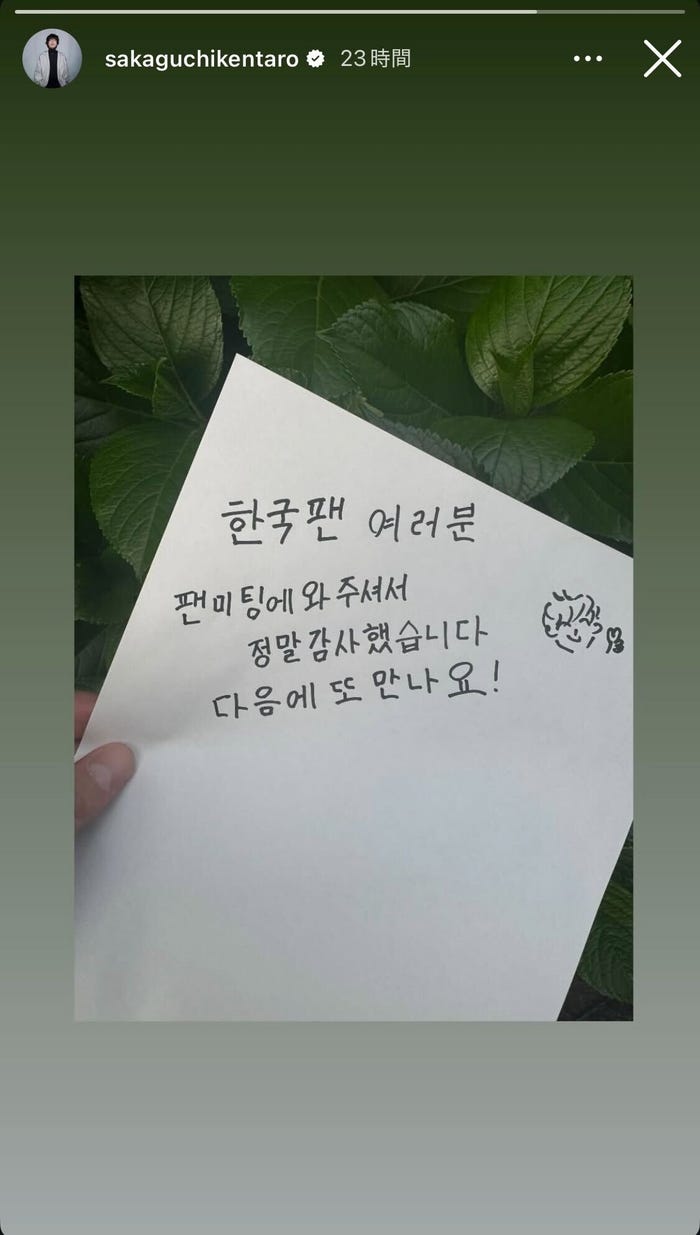 sakaguchikentaro 23時間
한국팬 여러분
팬미팅에 와 주셔서
정말 감사했습니다
다음에 또 만나요!